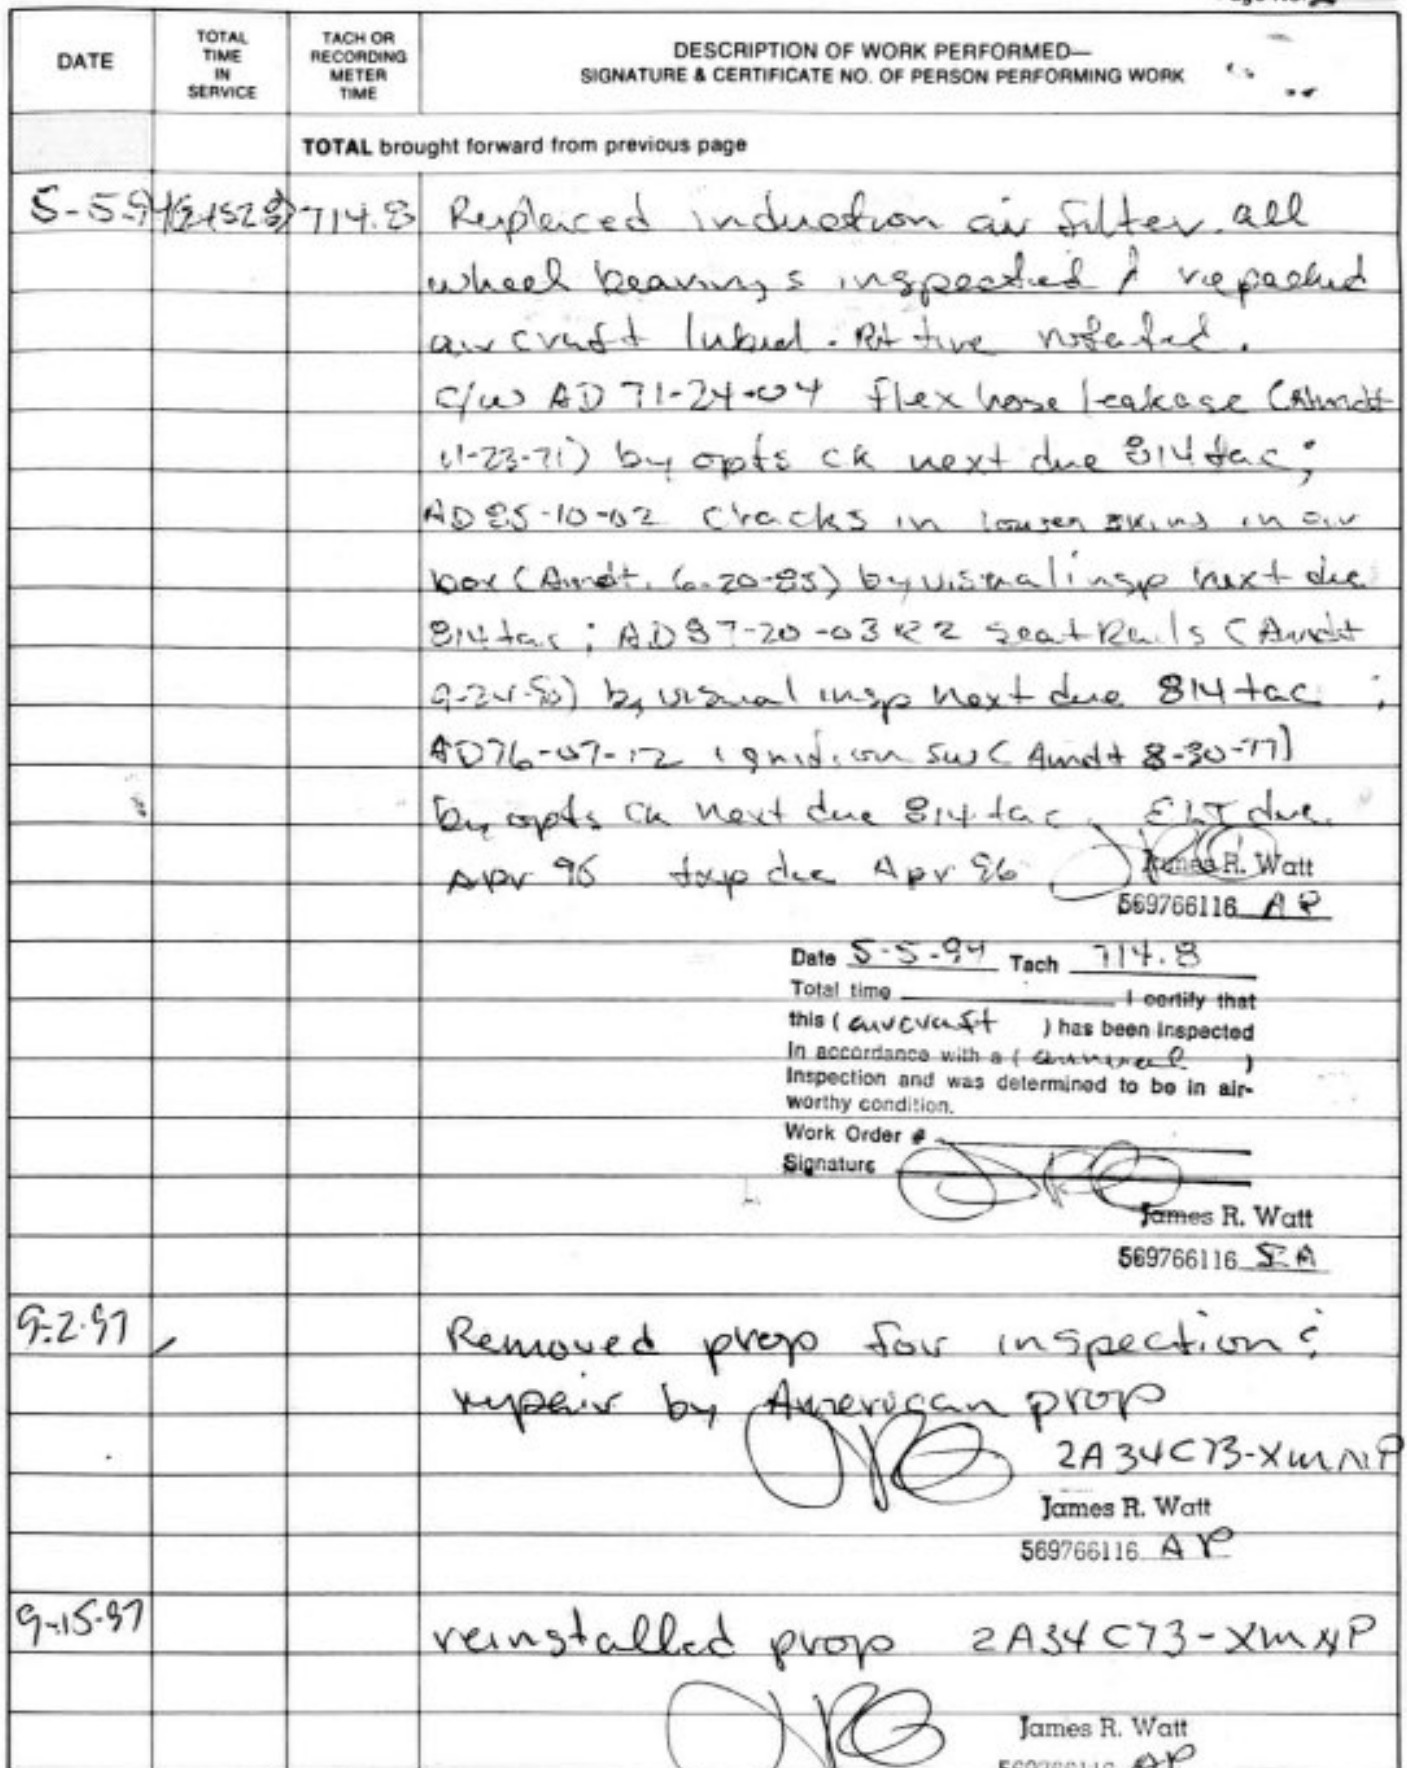 DATE
TOTAL TIME IN SERVICE
TACH OR RECORDING METER TIME
DESCRIPTION OF WORK PERFORMED—
SIGNATURE & CERTIFICATE NO. OF PERSON PERFORMING WORK
TOTAL brought forward from previous page
5-5-94 714.8 Replaced induction air filter. all
wheel bearings inspected & repacked
aircraft lubed. tire rotated.
c/w AD 71-24-04 flex hose leakage (Amdt
11-23-71) by opts ck next due 814 tac;
AD 85-10-02 cracks in louver skins in air
box (Amdt. 6-20-85) by visual insp next due
814 tac; AD 87-20-03 R2 Seat Rails (Amdt
by visual insp next due 814 tac;
AD76-07-12 ignition sw (Amdt 8-30-77)
by opts ck next due 814 tac. ELT due
Apr 96 due Apr 96
James R. Watt
569766116 AP
Date 5-5-94 Tach 714.8
Total time I certify that
this (aircraft) has been inspected
In accordance with a (annual)
Inspection and was determined to be in air-
worthy condition.
Work Order #
Signature
James R. Watt
569766116 IA
9-2-97 Removed prop for inspection &
repair by American prop
2A34C73-XMNP
James R. Watt
569766116 AP
9-15-97 reinstalled prop 2A34C73-XMNP
James R. Watt
569766116 AP